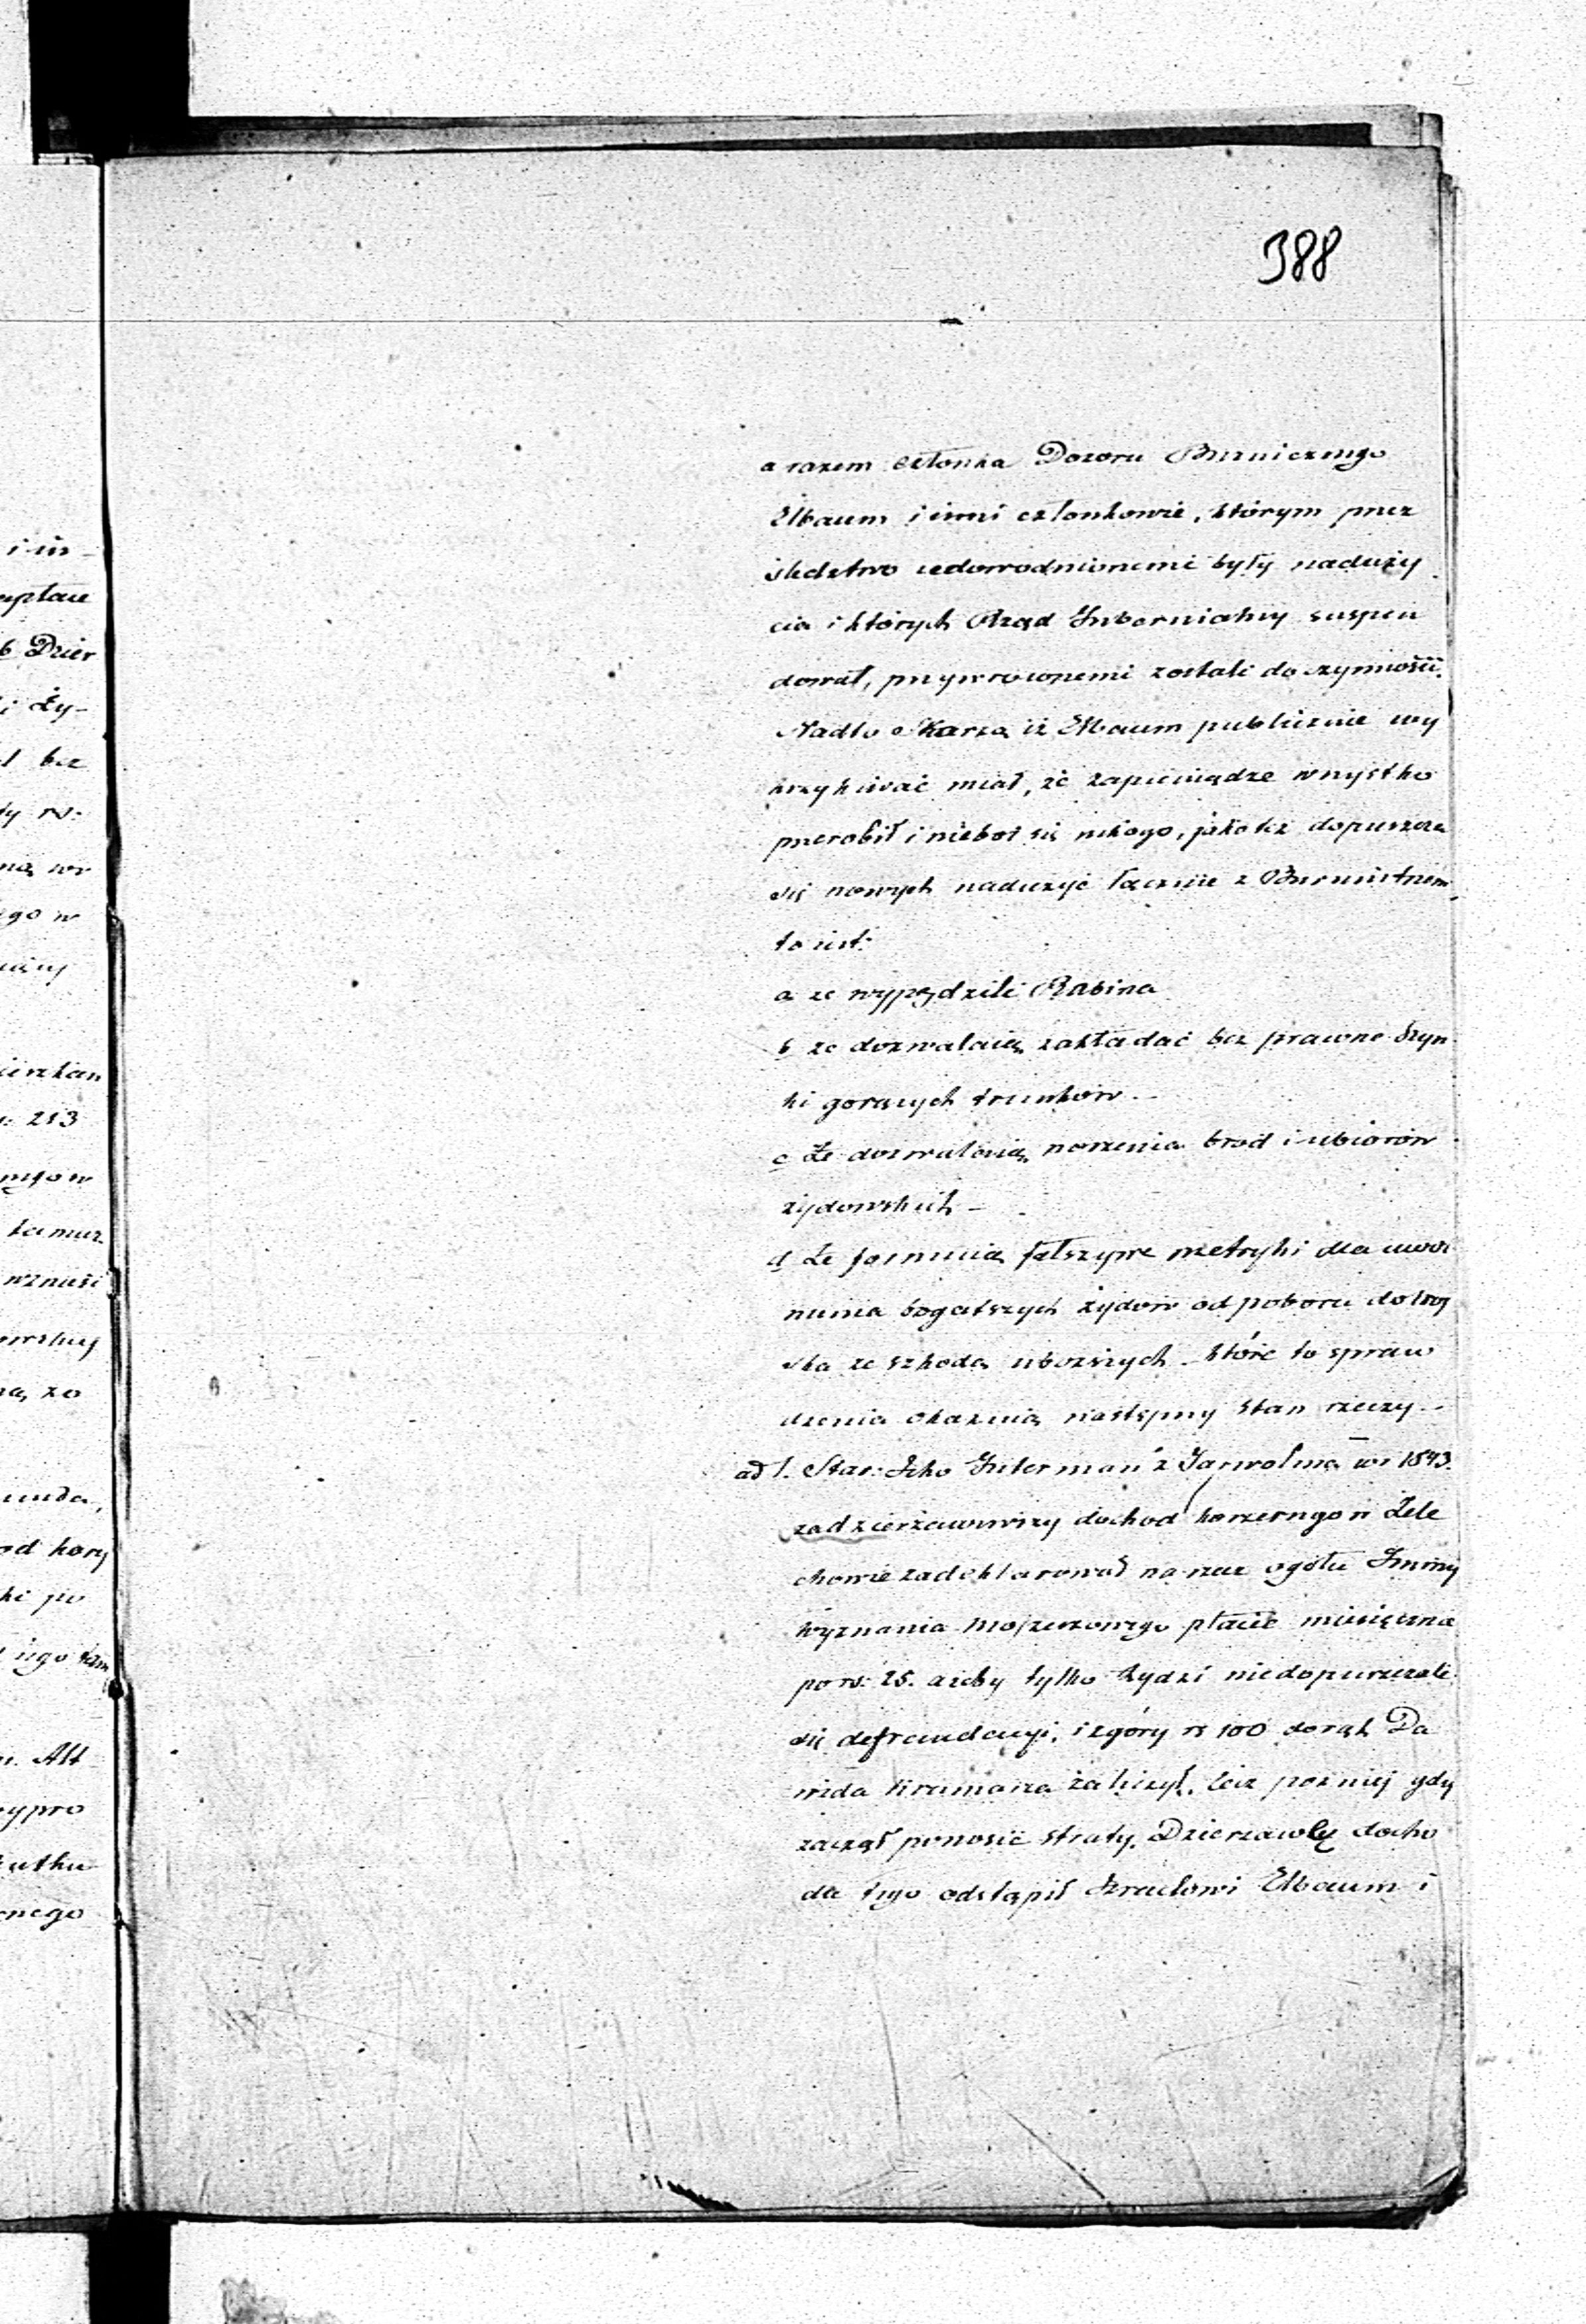 388
a razem członka Dozoru Bużniczego
Elbaum i inni członkowie, którym przez
śledztwo udowodnionemi były naduży
cia i których Rząd Gubernialny suspen
dował, przywroconemi zostali do czynności.
Nadto skarżą iż Elbaum publicznie wy
krzykiwać miał, że zapieniądze wszystko
przerobił i nieboi się nikogo, jakoteż dopuszcza
się nowych nadużyć łącznie z Burmistrzem
to iest:
a ze wypędzili Rabina
b ze dozwalaią zakładać bez prawne Szyn
ki gorących trunków
c Że dozwalaią noszenia brod i ubiorów
żydowskich
d Że formuią fałszywe metryki dla uwol
nienia bogatszych żydow od poboru do woj
ska ze szkodą uboższych które to spraw
dzenia okazuią następny stan rzeczy
ad 1. Star: Icko Guterman z Garwolina w 1843.
zadzierżawiwszy dochod koszernego w Żele
chowie zadeklarował na rzecz ogółu Gminy
wyznania mojżeszowego płacić miesięcznie
po rs: 25. ażeby tylko Żydzi niedopuszczali
się defraudacyi, i zgóry rs 100 do rąk Da
wida Kramarza zaliczył, lecz pozniej gdy
zaczął ponosić straty, Dzierzawę docho
du tego odstąpił Szulowi Elbaum i
i in
b Dzier
i Ży-
bez
213
Alt
ypro
nego